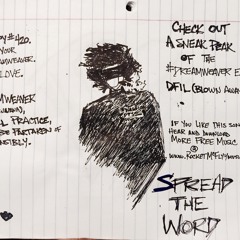 #420.
YOUR
LOVE.
WEAVER
PRACTICE,
PARTAKEN OF
CHECK OUT
A SNEAK PEAK
OF THE
#DREAMWEAVER E
DFIL (BLOWN AWA
IF YOU LIKE THIS SON
HEAR AND DOWNLOAD
MORE FREE MUSIC
@
WWW.ROCKETMCFLY
SPREAD
THE
WORD